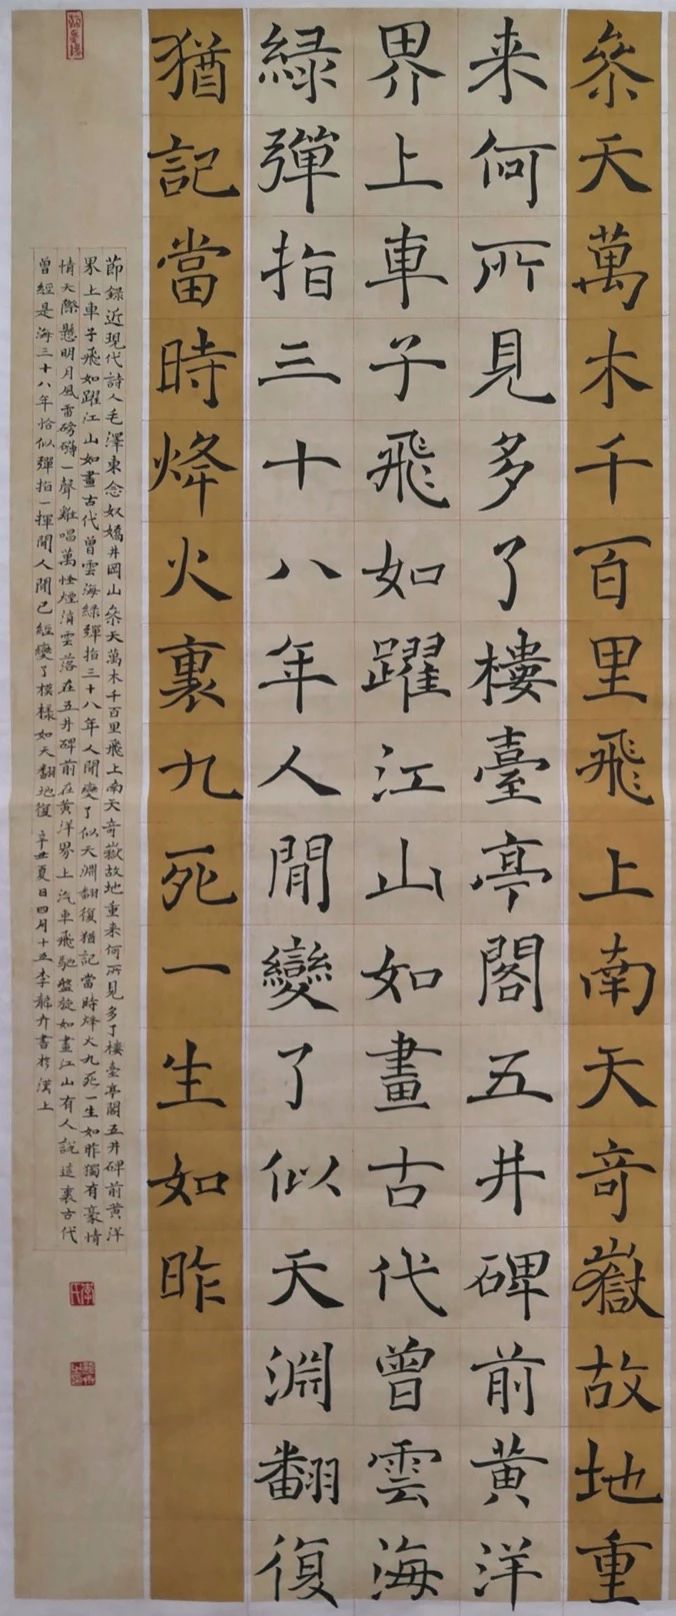 叅天萬木千百里飛上南天竒嶽故地重
来何所見多了樓臺亭閣五井碑前黄洋
界上車子飛如躍江山如畫古代曾雲海
緑彈指三十八年人間變了似天淵翻復
猶記當時烽火裏九死一生如昨
節録近現代詩人毛澤東念奴嬌井岡山叅天萬木千百里飛上南天竒嶽故地重来何所見多了樓臺亭閣五井碑前黄洋
界上車子飛如躍江山如畫古代曾雲海緑彈指三十八年人間變了似天淵翻復猶記當時烽火九死一生如昨獨有豪情
情天際懸明月風雷磅礴一聲雞唱萬怪煙消雲落在五井碑前在黄洋界上汽車飛馳盤旋如畫江山有人說這裏古代
曾經是海三十八年恰似彈指一揮間人間已經變了模樣如天翻地復辛丑夏日四月十五李書於漢上
李氏